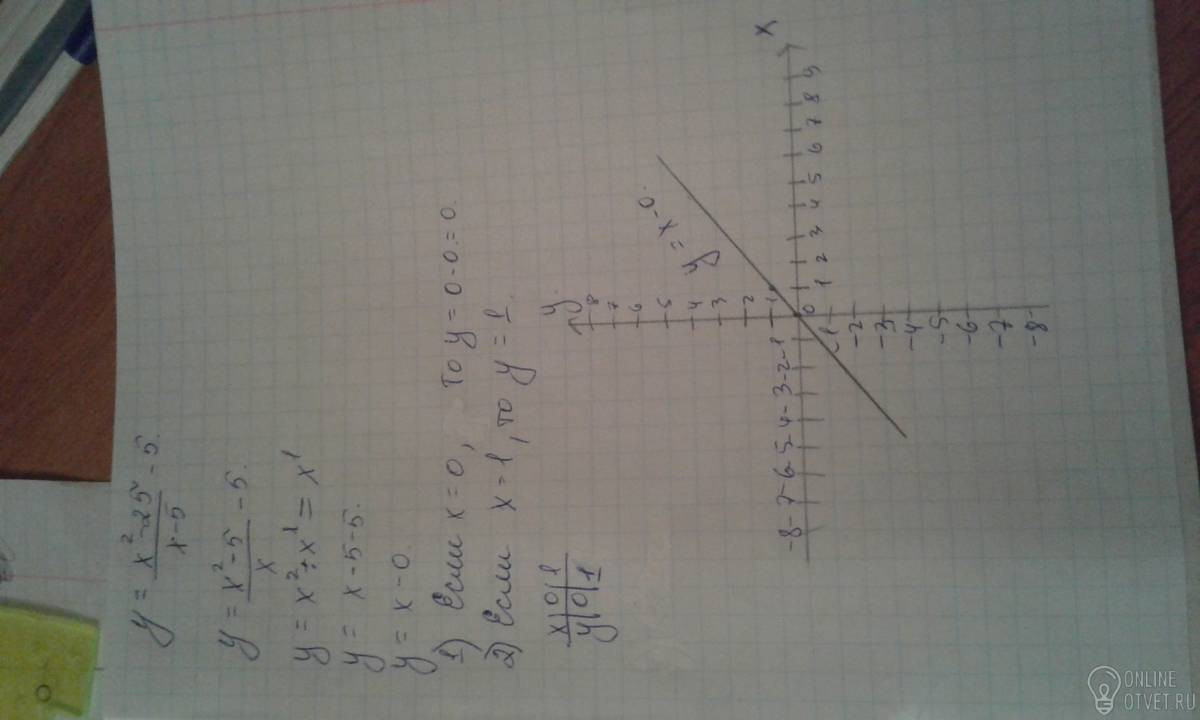 y = x²-25/x-5 - 5.
y = x²-5/x - 5.
y = x² ÷ x¹ = x¹
y = x-5-5.
y = x-0
1) Если x=0, То y=0-0.=0.
2) Если x=1, то y=1.
x|0|1
y|0|1
y
8
7
6
5
4
3
2
1
y=x-0.
-8-7-6-5 4-3-2-1 0 1 2 3 4 5 6 7 8 9 x
-1
-2
-3
-4
-5
-6
-7
-8
ONLINE
OTVET.RU